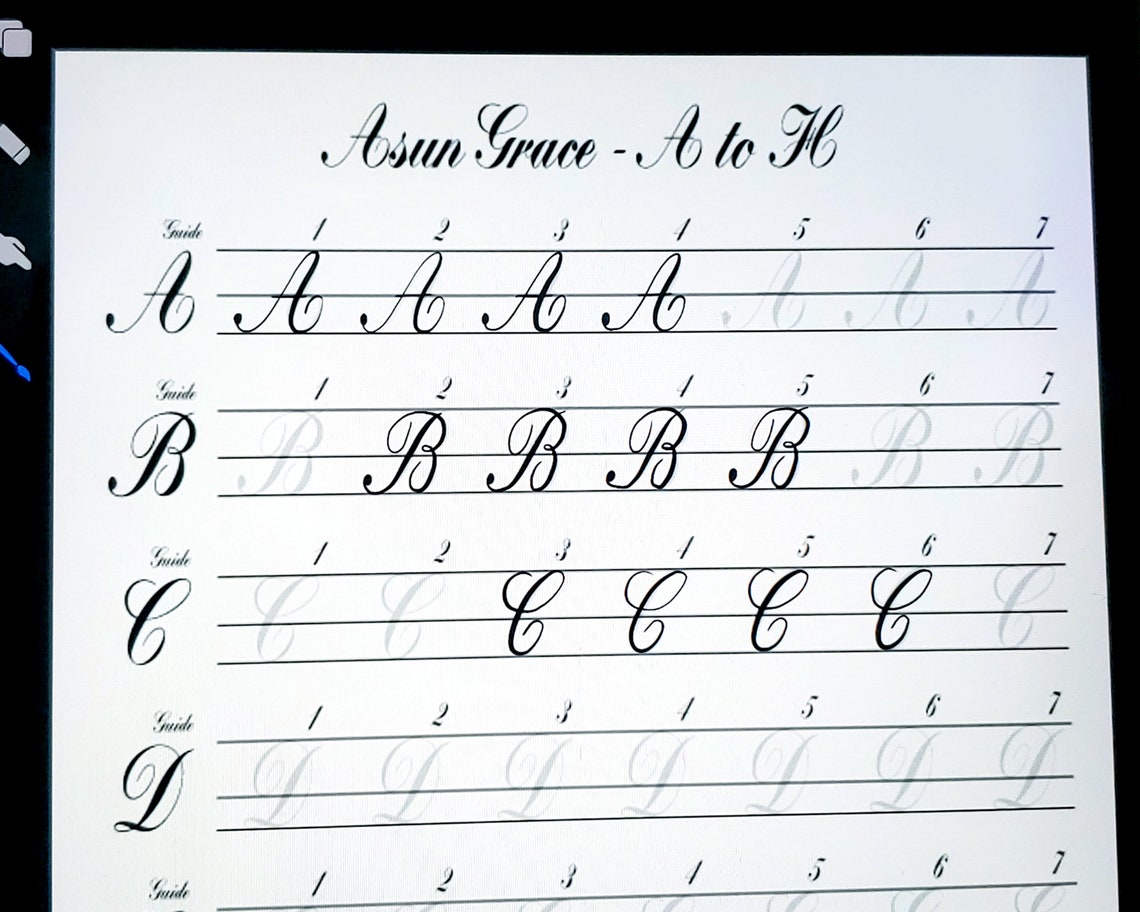 Asun Grace - A to H
Guide 1 2 3 4 5 6 7
A A A A A A A A
Guide 1 2 3 4 5 6 7
B B B B B B B B
Guide 1 2 3 4 5 6 7
C C C C C C C C
Guide 1 2 3 4 5 6 7
D D D D D D D D
Guide 1 2 3 4 5 6 7